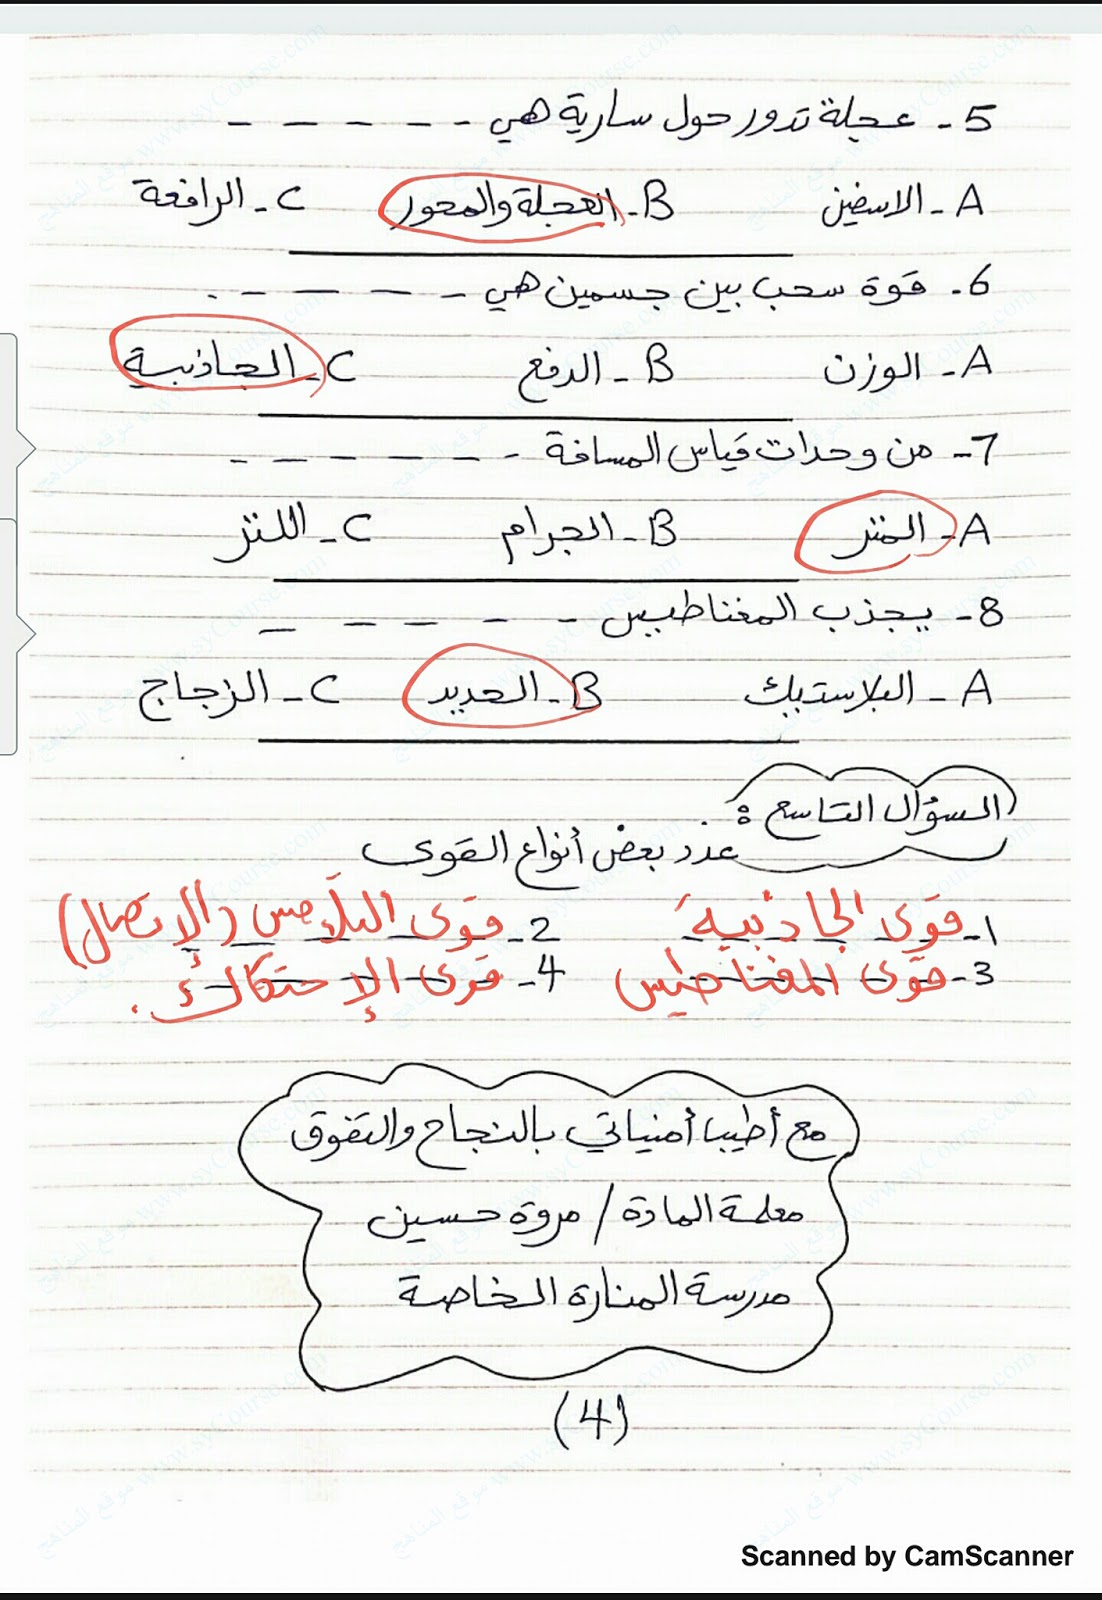 5- عجلة تدور حول سارية هي - - - - - -
A- الاسفين B- العجلة والمحور C- الرافعة
6- قوة سحب بين جسمين هي - - - - - .
A- الوزن B- الدفع C- الجاذبية
7- من وحدات قياس المسافة - - - - - - -
A- المتر B- الجرام C- اللتر
8- يجذب المغناطيس - - - - -
A- البلاستيك B- الحديد C- الزجاج
السؤال التاسع :.
عدد بعض أنواع القوى
1- قوى الجاذبية 2- قوى التلامس (الإتصال)
3- قوى المغناطيس 4- قوى الإحتكاك.
مع أطيب أمنياتي بالنجاح والتفوق
معلمة المادة / مروة حسين
مدرسة المنارة الخاصة
(4)
Scanned by CamScanner
موقع المناهج www.syCourse.com